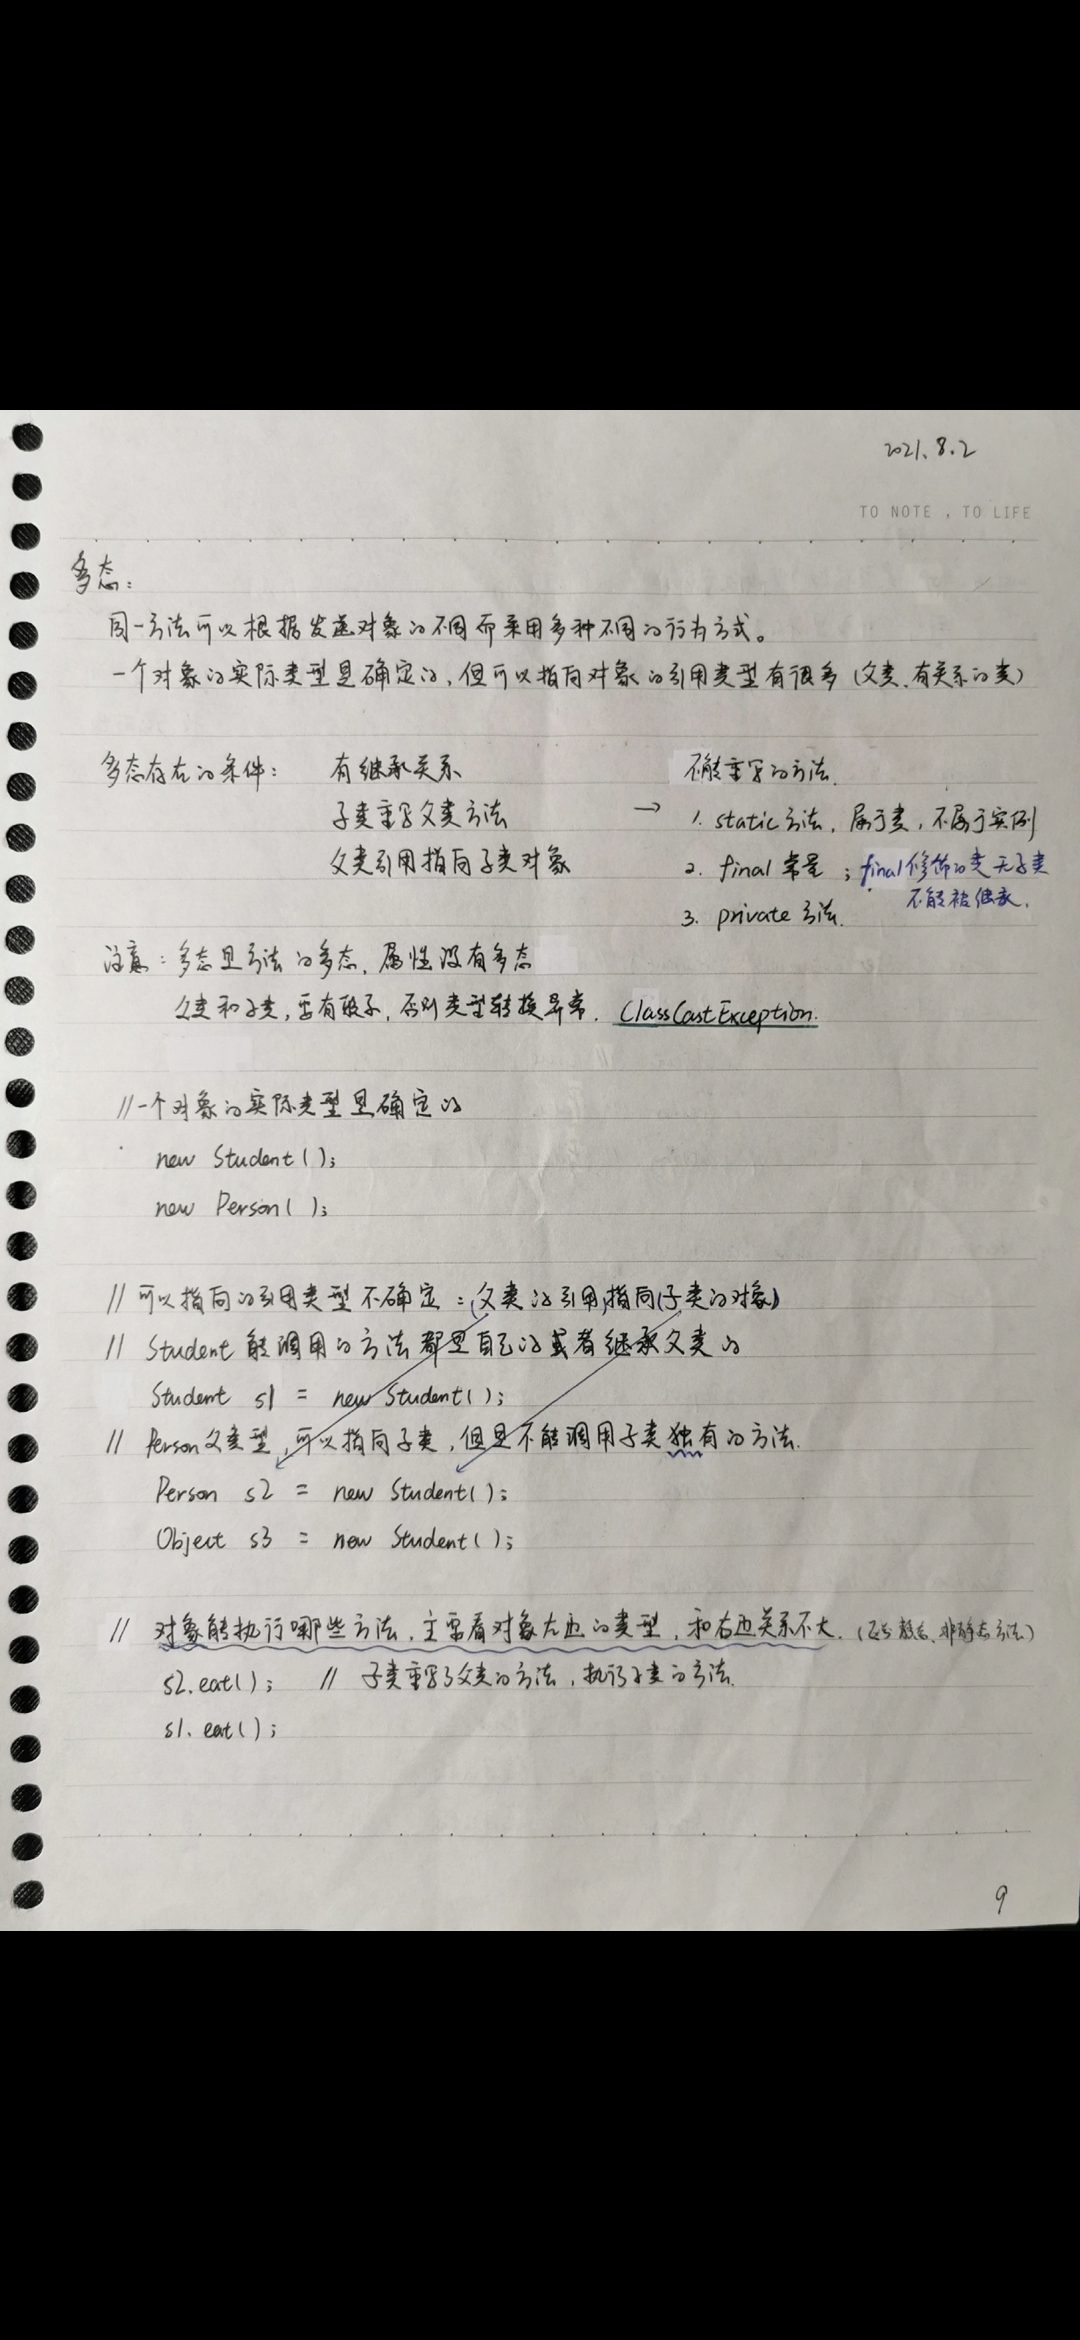 2021.8.2
TO NOTE , TO LIFE
多态:
同一方法可以根据发送对象的不同而采用多种不同的行为方式。
一个对象的实际类型是确定的,但可以指向对象的引用类型有很多 (父类、有关系的类)
多态存在的条件: 有继承关系
子类重写父类方法
父类引用指向子类对象
不能重写的方法.
→ 1. static 方法, 属于类, 不属于实例
2. final 常量 ; final修饰的类无子类
不能被继承.
3. private 方法.
注意: 多态是方法的多态, 属性没有多态
父类和子类, 要有联系, 否则类型转换异常. ClassCastException.
// 一个对象的实际类型是确定的
new Student();
new Person();
// 可以指向的引用类型不确定 : (父类的引用)指向(子类的对象)
// Student 能调用的方法都是自己的或者继承父类的
Student s1 = new Student();
// Person父类型, 可以指向子类, 但是不能调用子类独有的方法.
Person s2 = new Student();
Object s3 = new Student();
// 对象能执行哪些方法, 主要看对象左边的类型, 和右边关系不大. (区分静态、非静态方法)
s2.eat(); // 子类重写了父类的方法, 执行子类的方法.
s1.eat();
9